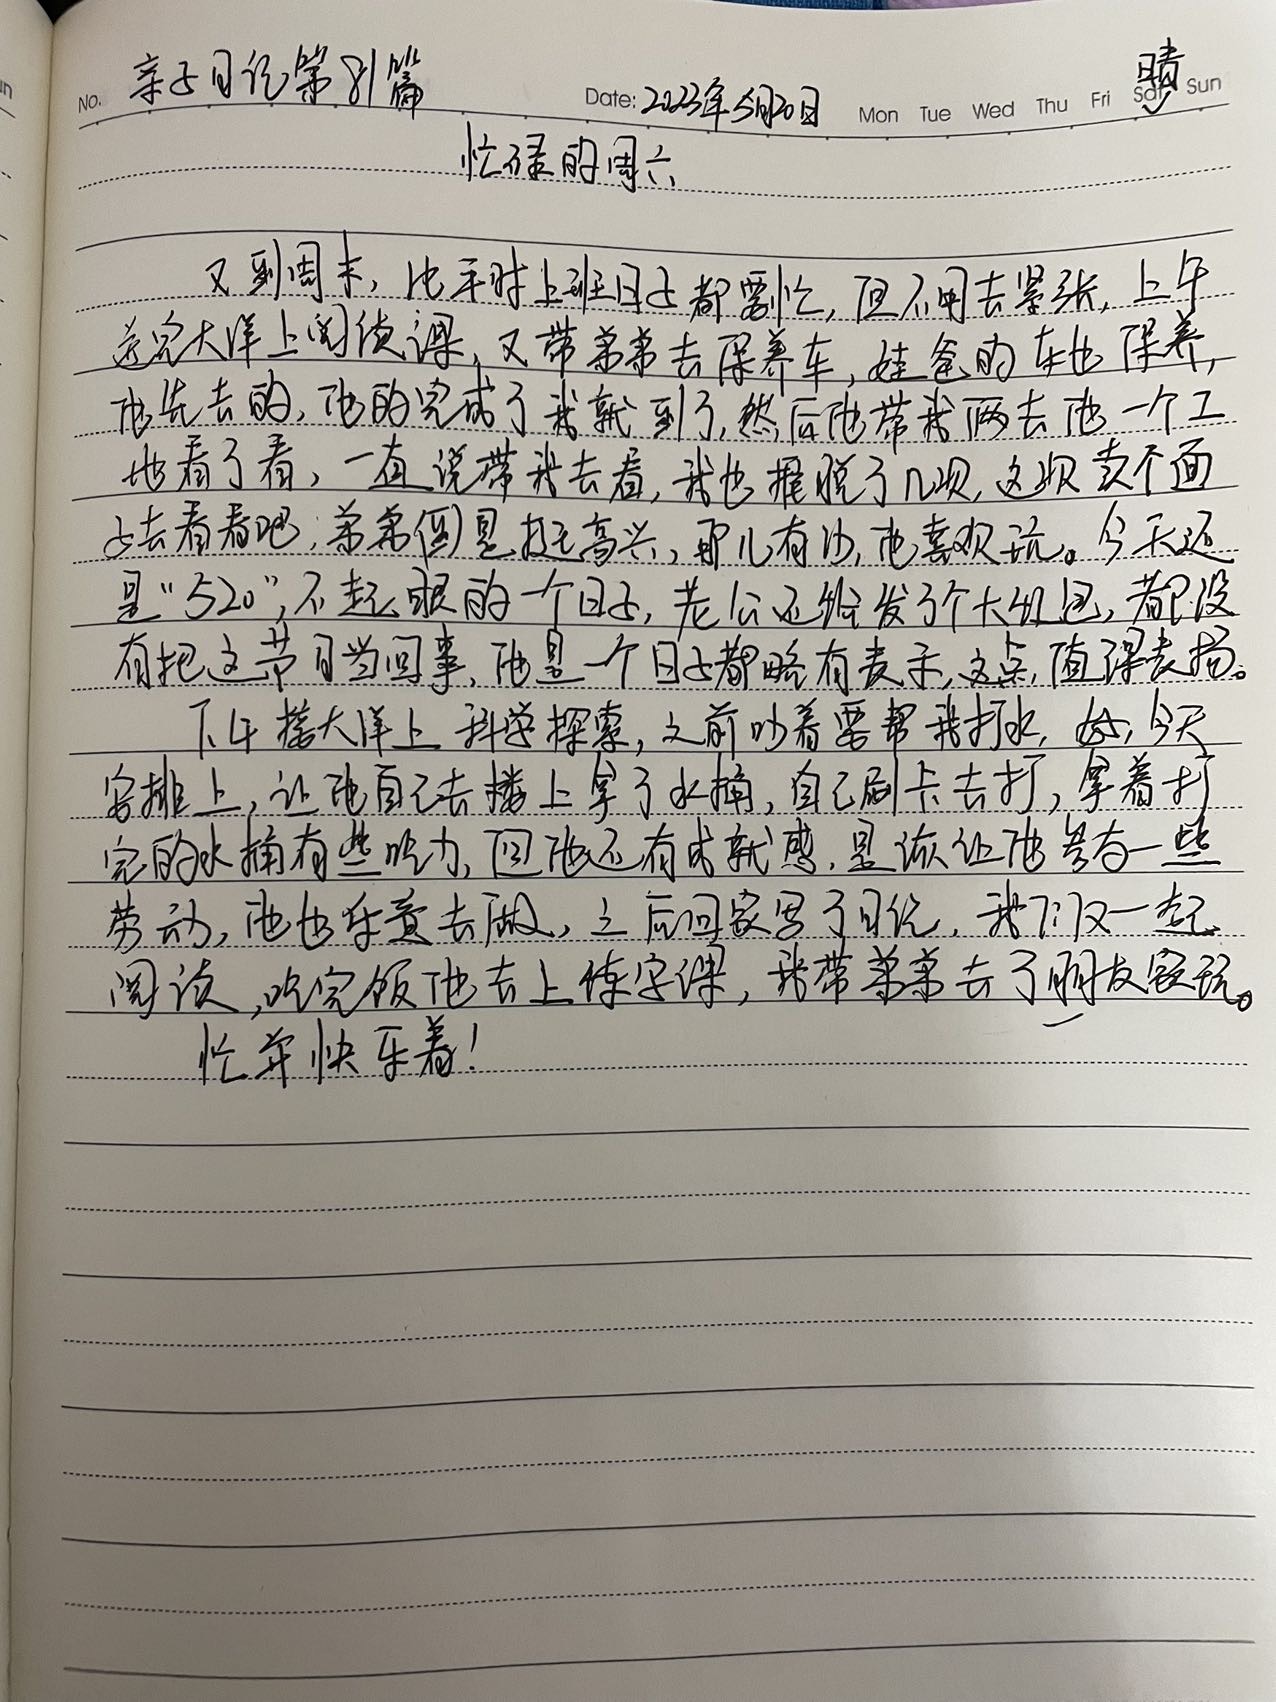 No. 亲子日记第81篇 Date: 2023年5月20日 Mon Tue Wed Thu Fri Sat Sun 晴
忙碌的周六
又到周末，比平时上班日子都要忙，但不用去紧张，上午
送完大洋上阅读课，又带弟弟去保养车，娃爸的车也保养，
他先去的，他的完成了我就到了，然后他带我俩去他一个工
地看了看，一直说带我去看，我也推脱了几次，这次卖个面
子去看看吧，弟弟倒是挺高兴，那儿有沙，他喜欢玩。今天还
是“520”，不起眼的一个日子，老公还给发了个大红包，都没
有把这节日当回事，他是一个日子都略有表示，这点，值得表扬。
下午接大洋上科学探索，之前吵着要帮我打水，好，今天
安排上，让他自己去楼上拿了水桶，自己刷卡去打，拿着打
完的水桶有些吃力，但他还有成就感，是该让他多有一些
劳动，他也乐意去做，之后回家写了日记，我们又一起
阅读，吃完饭他去上练字课，我带弟弟去了朋友家玩。
忙并快乐着！